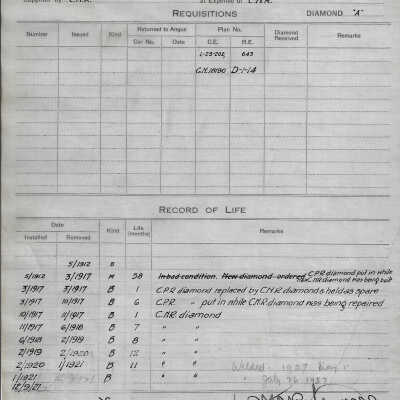 Supplied by C.N.R. at Expense of C.N.R.
REQUISITIONS DIAMOND "A"
Number Issued Kind Returned to Angus Plan No. Diamond Received Remarks
Car No. Date C.E. M.E.
L-23-202 643
C.N.18190 D-1-14
RECORD OF LIFE
Date Kind Life (months) Remarks
Installed Removed
5/1912 B
5/1912 3/1917 M 58 In bad condition. New diamond ordered C.P.R. diamond put in while
C.N.R. diamond was being built
3/1917 3/1917 B 1 C.P.R. diamond replaced by C.N.R. diamond & held as spare
3/1917 10/1917 B 6 C.P.R. " put in while C.N.R. diamond was being repaired
10/1917 11/1917 B 1 C.N.R. diamond
11/1917 6/1918 B 7 " "
6/1918 2/1919 B 8 " "
2/1919 2/1920 B 12 " "
2/1920 1/1921 B 11 " " Welded 1927
1/1921 B " July 26 1927
12/9/21